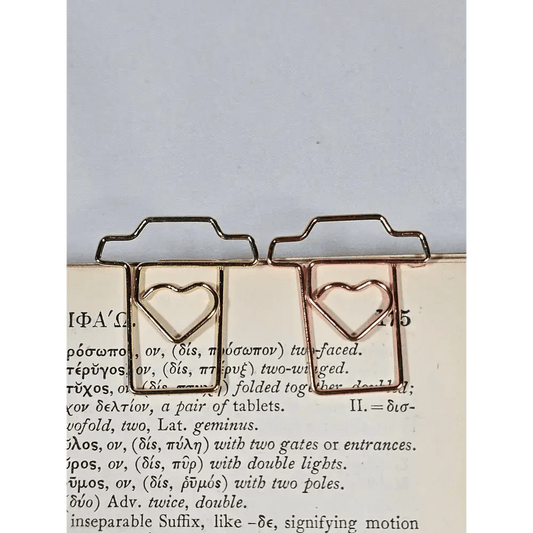 ΙΦΑΏ. 175
ρόσωπος, ον, (δίς, πρόσωπον) two-faced.
τέρυγος, ον, (δίς, πτέρυξ) two-winged.
τῦχος, ον, (δίς, πτυχή) folded together, doubled;
χον δελτίον, a pair of tablets. II. = δισ-
wofold, two, Lat. geminus.
υλος, ον, (δίς, πύλη) with two gates or entrances.
ῦρος, ον, (δίς, πῦρ) with double lights.
ῦμος, ον, (δίς, ῥῡμός) with two poles.
(δύο) Adv. twice, double.
inseparable Suffix, like -δε, signifying motion